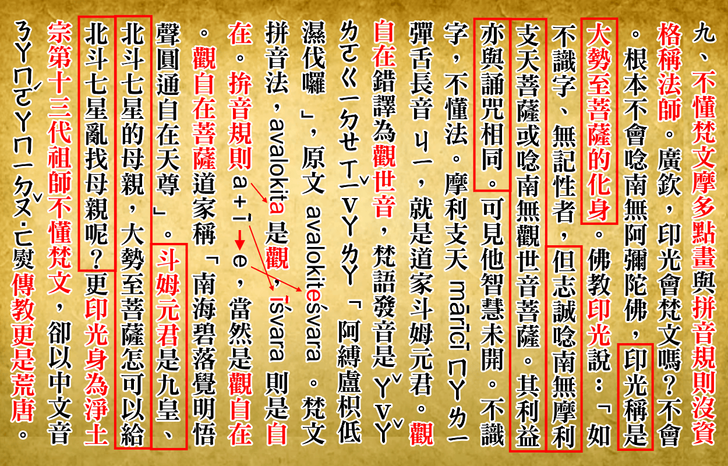 九、不懂梵文摩多點畫與拼音規則沒資
格稱法師。廣欽，印光會梵文嗎？不會
。根本不會唸南無阿彌陀佛，印光稱是
大勢至菩薩的化身。佛教印光說：「如
不識字、無記性者，但志誠唸南無摩利
支天菩薩或唸南無觀世音菩薩。其利益
亦與誦咒相同。可見他智慧未開。不識
字，不懂法。摩利支天 mārīcī ㄇㄚㄌㄧ
彈舌長音ㄐㄧ，就是道家斗姆元君。觀
自在錯譯為觀世音，梵語發音是 ㄚˇVㄚˇ
ㄌㄛㄍㄧㄉㄝㄒㄧˇVㄚㄌㄚ「阿縛盧枳低
濕伐囉 」，原文 avalokiteśvara 。梵文
拼音法，avalokita 是觀，īśvara 則是自
在。拚音規則 a+ī → e，當然是觀自在
。觀自在菩薩道家稱「南海碧落覺明悟
聲圓通自在天尊 」。斗姆元君是九皇、
北斗七星的母親，大勢至菩薩怎可以給
北斗七星亂找母親呢？更印光身為淨土
宗第十三代祖師不懂梵文，卻以中文音
ㄋㄚㄇㄛˊㄚㄇㄧㄉㄡˇ．ㄈ熨傳教更是荒唐。